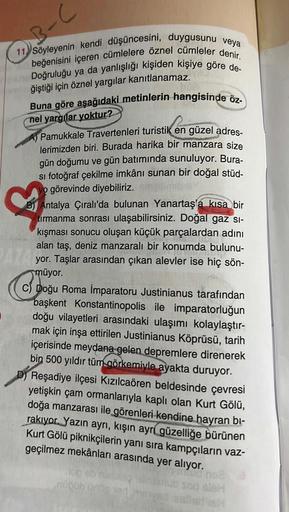 B-C
11. Söyleyenin kendi düşüncesini, duygusunu veya
beğenisini içeren cümlelere öznel cümleler denir.
Doğruluğu ya da yanlışlığı kişiden kişiye göre de-
ğiştiği için öznel yargılar kanıtlanamaz.
Buna göre aşağıdaki metinlerin hangisinde öz-
nel yargılar yoktur?
A) Pamukkale Travertenleri turistik en güzel adres-
lerimizden biri. Burada harika bir manzara size
gün doğumu ve gün batımında sunuluyor. Bura-
sı fotoğraf çekilme imkânı sunan bir doğal stüd-
yo görevinde diyebiliriz.
B) Antalya Çıralı'da bulunan Yanartaş'a kısa bir
tırmanma sonrası ulaşabilirsiniz. Doğal gaz sı-
kışması sonucu oluşan küçük parçalardan adını
alan taş, deniz manzaralı bir konumda bulunu-
yor. Taşlar arasından çıkan alevler ise hiç sön-
müyor.
C) Doğu Roma İmparatoru Justinianus tarafından
başkent Konstantinopolis ile imparatorluğun
doğu vilayetleri arasındaki ulaşımı kolaylaştır-
mak için inşa ettirilen Justinianus Köprüsü, tarih
içerisinde meydana gelen depremlere direnerek
bin 500 yıldır tüm görkemiyle ayakta duruyor.
D) Reşadiye ilçesi Kızılcaören beldesinde çevresi
yetişkin çam ormanlarıyla kaplı olan Kurt Gölü,
doğa manzarası ile görenleri kendine hayran bı-
rakıyor. Yazın ayrı, kışın ayrı güzelliğe bürünen
Kurt Gölü piknikçilerin yanı sıra kampçıların vaz-
geçilmez mekânları arasında yer alıyor.